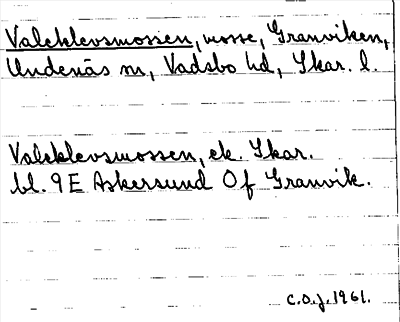 Valeklevsmossen, mosse, Granviken,
Undenäs sn, Vadsbo hd, Skar. l.
Valeklevsmossen, ek. Skar.
bl. 9E Askersund Of Granvik.
C.O.J. 1961.